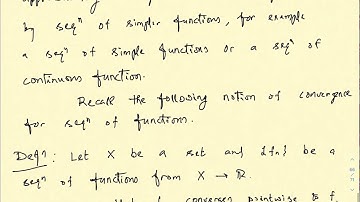 by seqⁿ of simpler functions, for example
a seqⁿ of simple functions or a seqⁿ of
continuous function.
Recall the following notion of convergence
for seqⁿ of functions.
Defⁿ: Let X be a set and {fn} be a
seqⁿ of functions from X → ℝ.
converges pointwise to f